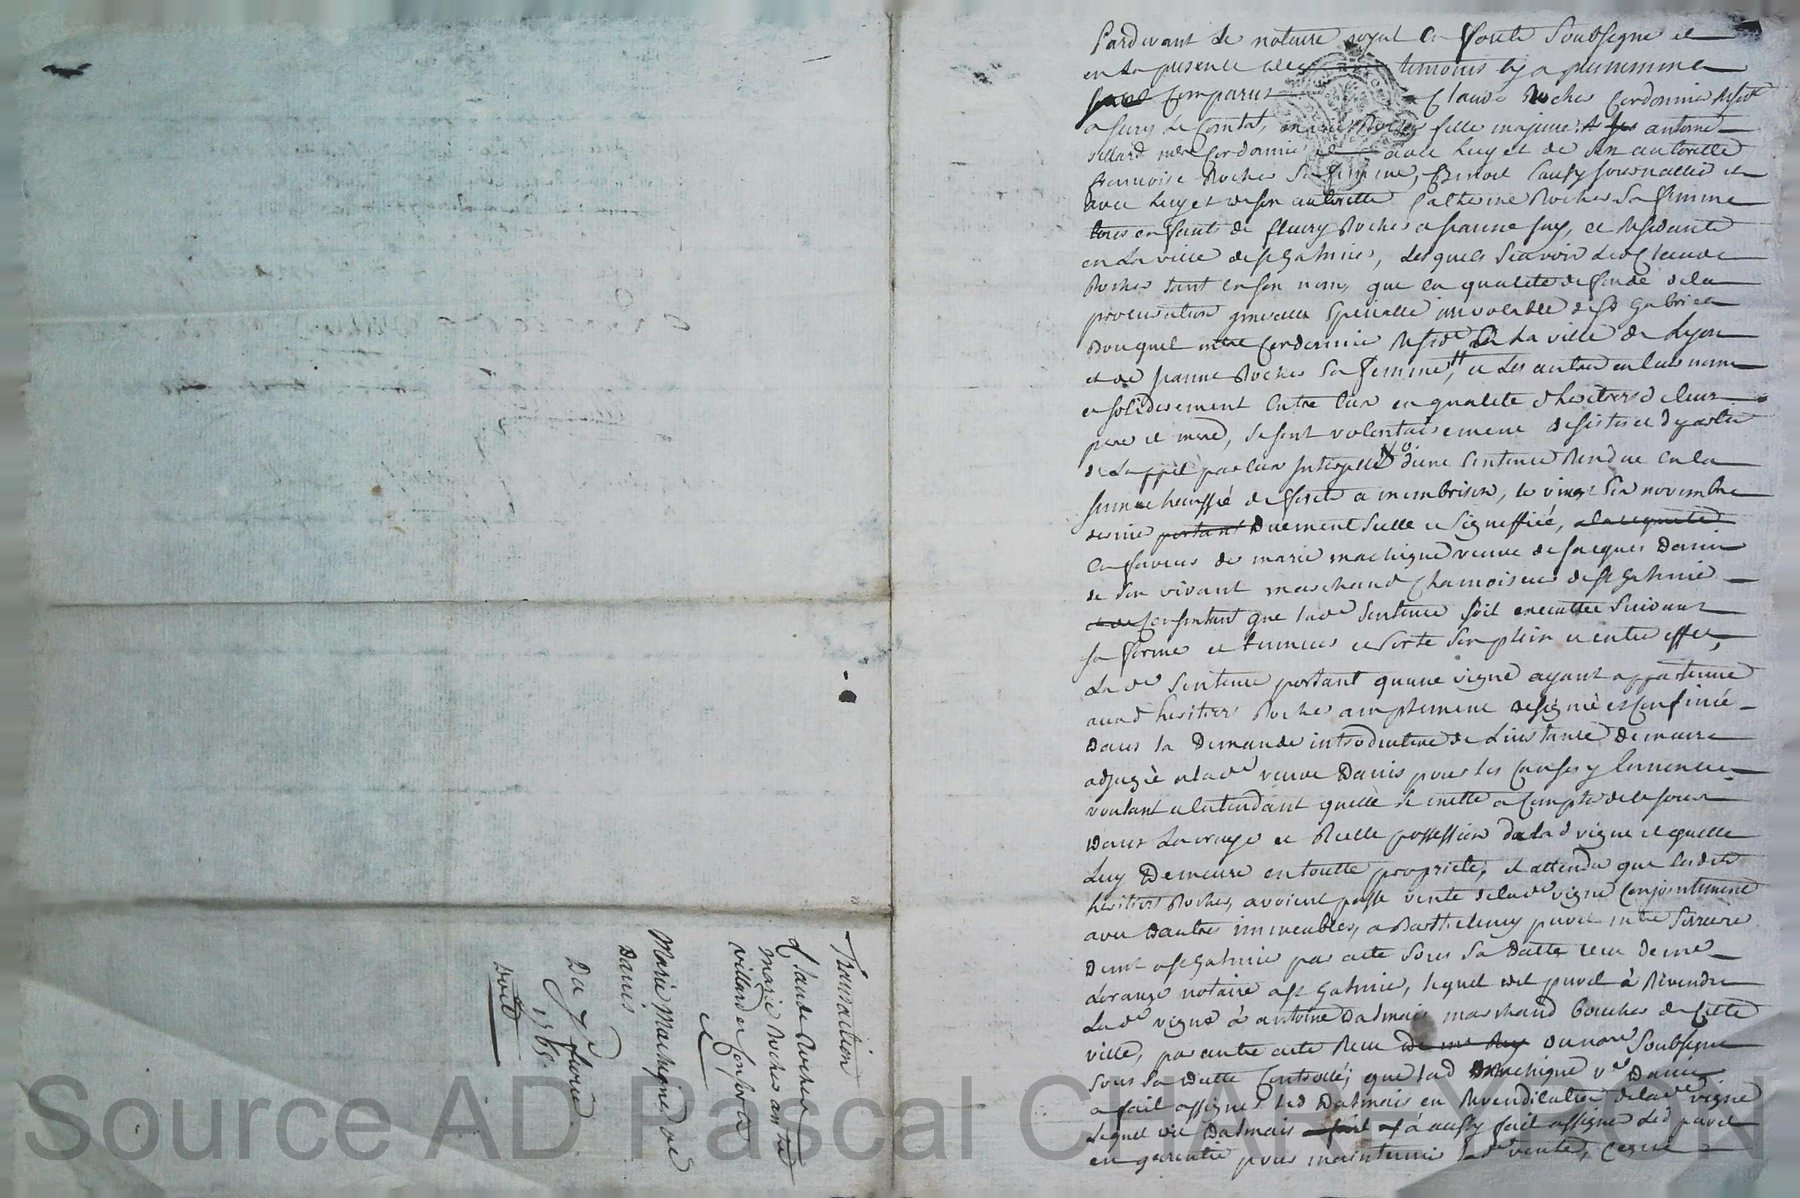 Pardevant le notaire royal en forest soubsigne et
en la presence des temoins cy a
Comparus Claude Roches Cordonnier
a sury le Comtal, marie Roches fille majeure antoine
villard mtre Cordonnier avec luy et de son autoritté
francoise Roches sa femme, Benoit journallier et
avec luy et de son autoritté Catherine Roches sa femme
tous enfants de fleury Roches et jeanne et residants
en la ville de st galmier, lesquels scavoir led Claude
Roches tant en son nom, que en qualité de fondé de la
procuration generalle specialle irrevocable de sr gabriel
Bouquet mtre Cordonnier en la ville de Lyon
et de jeanne Roches sa femme, et les autres en leur nom
et solidairement entre eux en qualité d'heritiers de leur
pere et mere, se sont volontairement desisté et departis
de l'appel par eux interjetté d'une sentence Rendue en la
senechaussée de forest a montbrison, le vingt six novembre
dernier portant Duement scelle et signeffiée, a la requette
en faveur de marie machigne veuve de jacques Danis
de son vivant marchand chamoiseur de st galmier
consentant que lad sentence soit executtée suivant
sa forme et teneur et sorte son plein et entier effet,
La de sentence portant qu'une vigne ayant appartenue
auxd heritiers Roches amplement designée et Confinée
Dans la Demande introductive de l'instance Demeure
adjugée a lade veuve Danis pour les Causes y Contenues
voulant et entendant quelle se mette a compter de ce jour
Dans la vraye et Reelle possession de lad vigne et quelle
Luy Demeure en toutte proprieté, et attendu que lesdits
heritiers Roches, avoient passé vente de lade vigne Conjointement
avec Dautres immeubles, a Barthelemy pavet mtre
Dud st galmier par acte sous sa Datte recu de me
Lorange notaire a st galmier, lequel ded pavet à Revendu
Lade vigne à antoine Dalmais marchand boucher de Cette
ville, par autre acte Recu de me Rey du nore soubsigne
sous sa datte Controllé; que lad Machigne ve Danis
a fait assigner led Dalmais en Revendication de lade vigne
Lequel dit Dalmais a aussy fait assigner led pavet
en garentie pour maintenir lade vente,
Transaction
Claude Roches
marie Roches antne
villard et consorts
et
Marie Machigne ve
Danis
Du 7e fevrier
1765